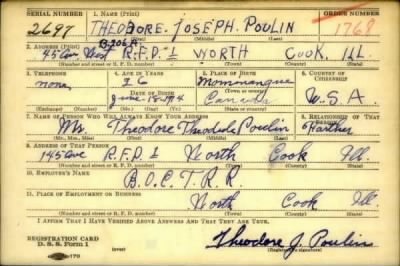 SERIAL NUMBER 1. NAME (Print) ORDER NUMBER
2697 THEODORE. JOSEPH. POULIN 1768
(First) (Middle) (Last)
2. ADDRESS (Print) B206A
45 Ave West R.F.D-1 WORTH COOK, ILL
(Number and street or R. F. D. number) (Town) (County) (State)
3. TELEPHONE 4. AGE IN YEARS 5. PLACE OF BIRTH 6. COUNTRY OF CITIZENSHIP
none 26
DATE OF BIRTH (Town or county)
June-18-1914 Canada U.S.A.
(Exchange) (Number) (Mo.) (Day) (Yr.) (State or country)
7. NAME OF PERSON WHO WILL ALWAYS KNOW YOUR ADDRESS 8. RELATIONSHIP OF THAT PERSON
Mr. Theodore Poulin
(Mr., Mrs., Miss) (First) (Middle) (Last)
9. ADDRESS OF THAT PERSON
145 Ave R.F.D 1 North Cook Ill.
(Number and street or R. F. D. number) (Town) (County) (State)
10. EMPLOYER'S NAME
B.O.C.T.R.R
11. PLACE OF EMPLOYMENT OR BUSINESS
North Cook Ill.
(Number and street or R. F. D. number) (Town) (County) (State)
I AFFIRM THAT I HAVE VERIFIED ABOVE ANSWERS AND THAT THEY ARE TRUE.
REGISTRATION CARD
D. S. S. Form 1 Theodore J. Poulin
(Registrant's signature)